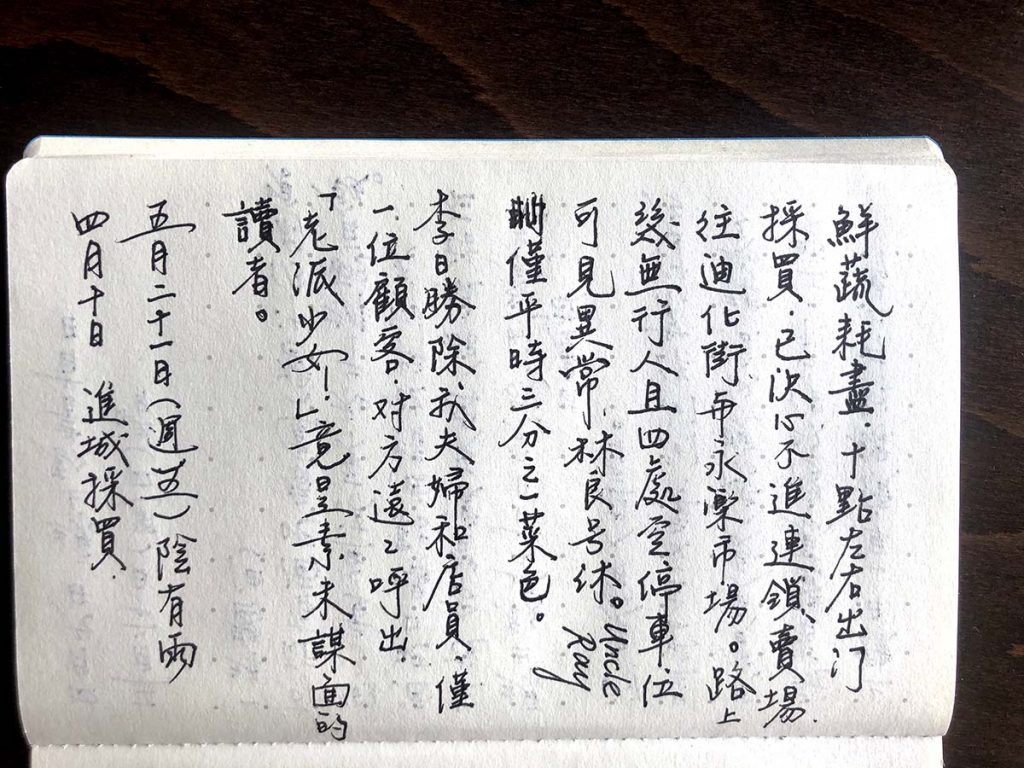 鮮蔬耗盡．十點左右出门
採買．已決心不進連鎖賣場．
往迪化街与永樂市場。路上
幾無行人且四處空停車位
可見異常．林良号休。Uncle Ray
僅平時三分之一菜色。
李日勝除我夫婦和店員．僅
一位顧客．对方遠々呼出
「老派少女！」竟是素未謀面的
讀者。
五月二十一日（週五）陰有雨
四月十日 進城採買．